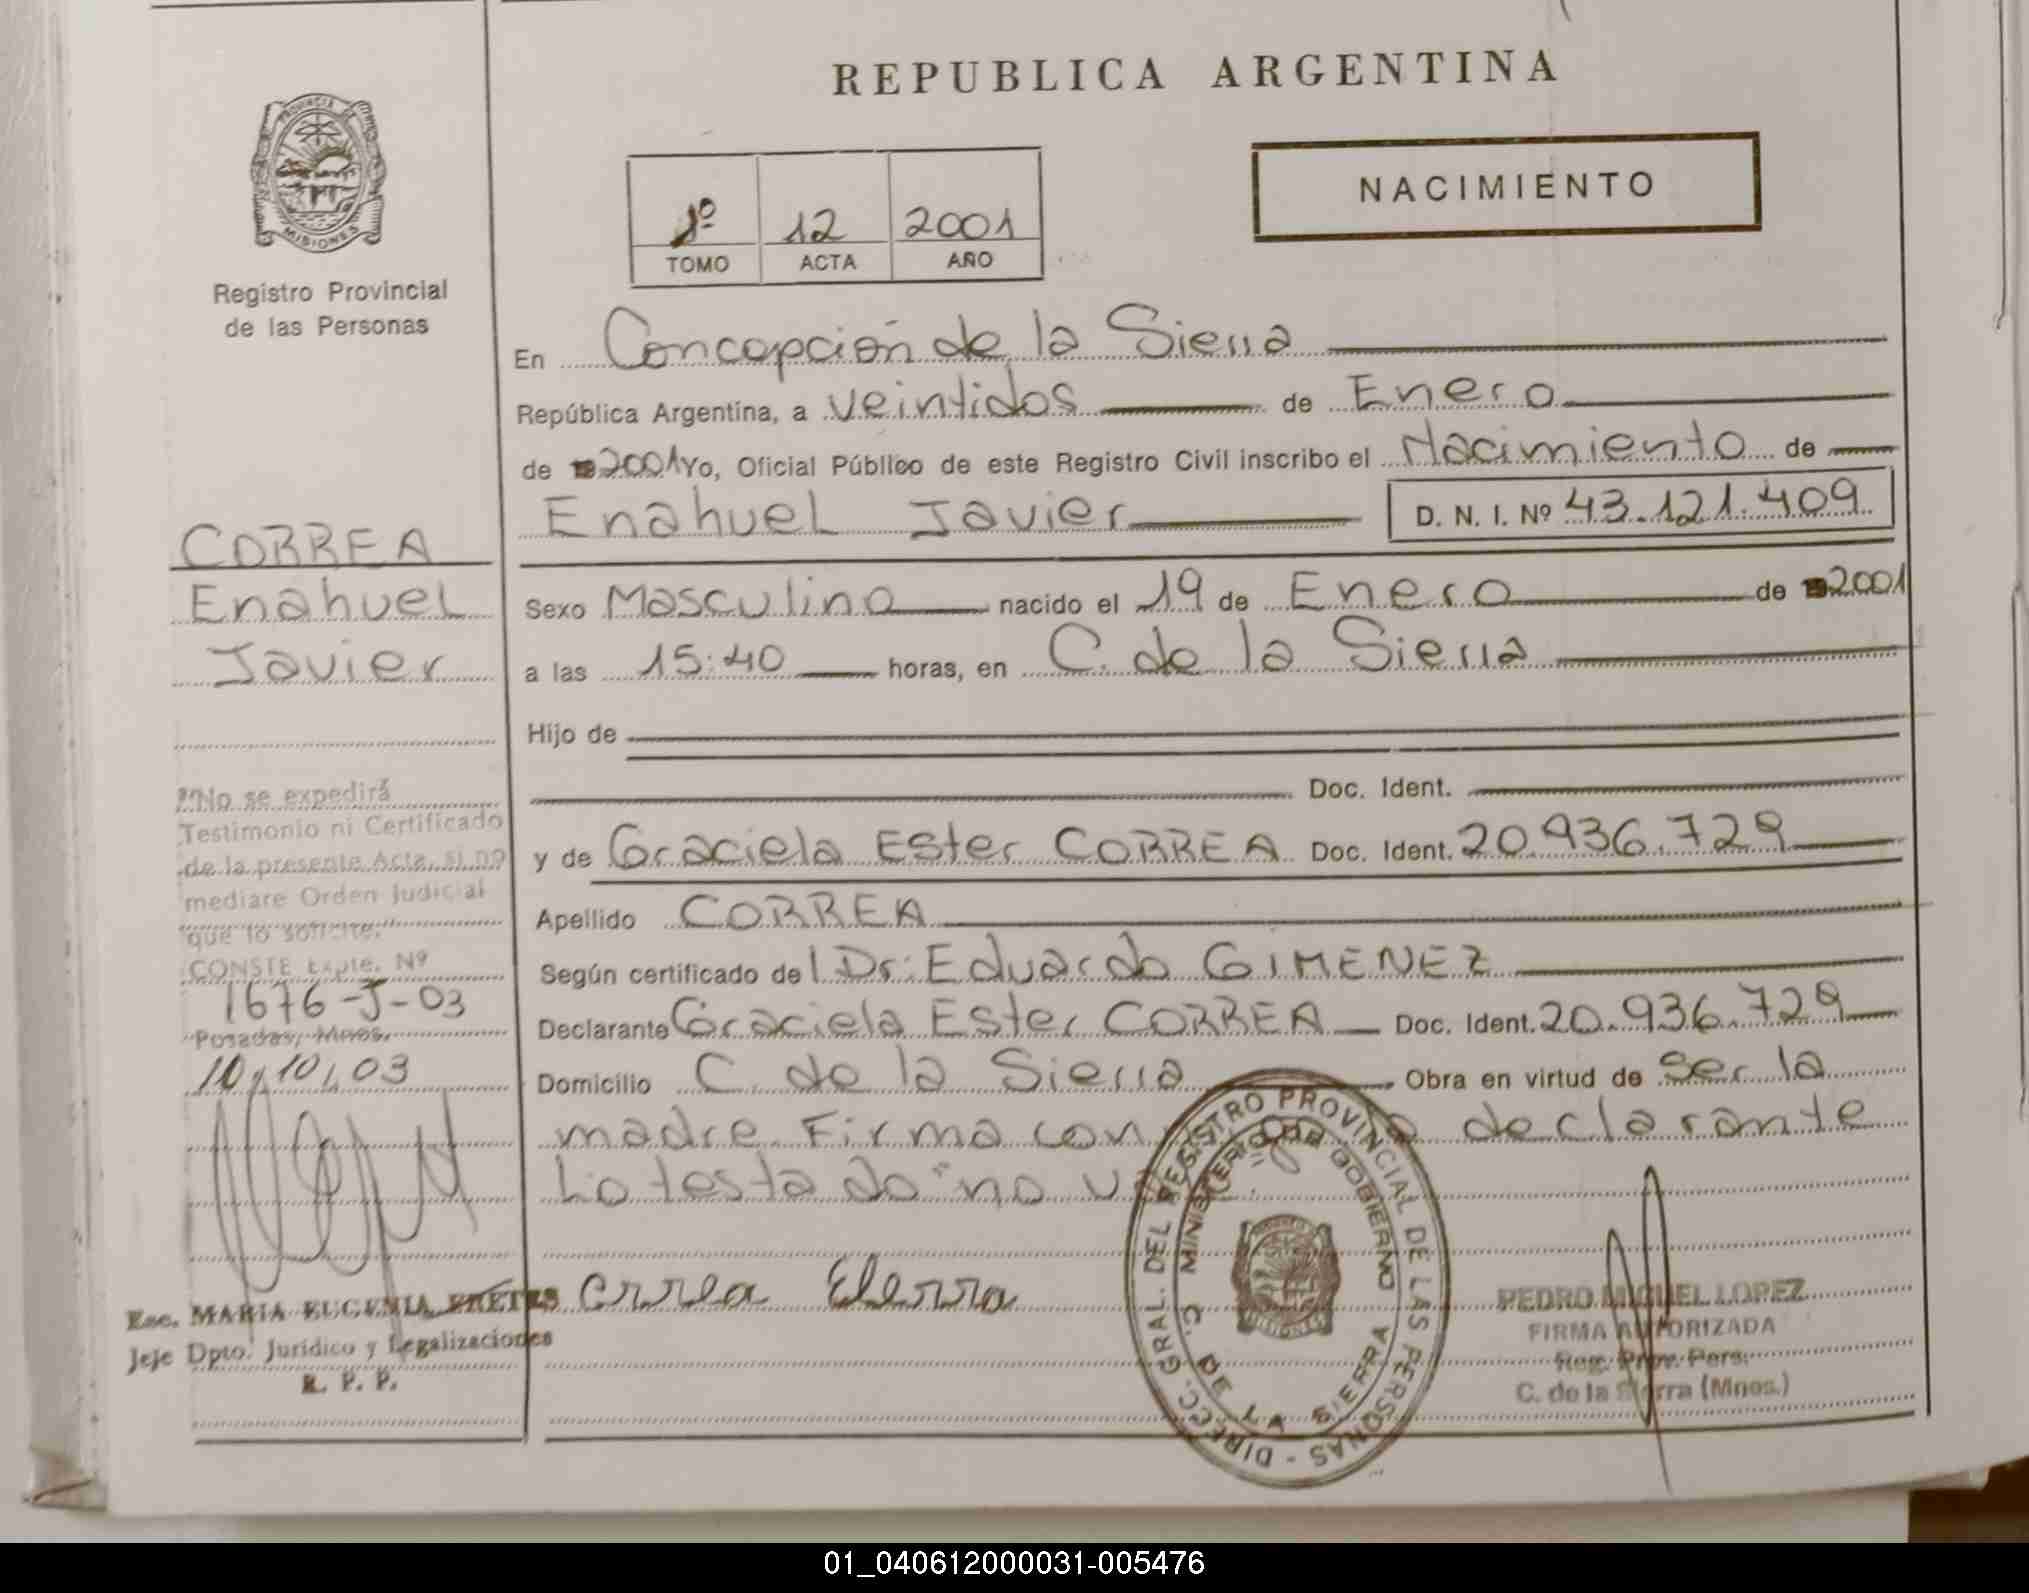 REPUBLICA ARGENTINA
PROVINCIA DE
MISIONES
Registro Provincial
de las Personas
1º 12 2001
TOMO ACTA AÑO
NACIMIENTO
En Concepción de la Sierra
República Argentina, a veintidos de Enero
de 2001 Yo, Oficial Público de este Registro Civil inscribo el Nacimiento de
Enahuel Javier D. N. I. Nº 43.121.409
CORREA
Enahuel
Javier
Sexo Masculino nacido el 19 de Enero de 2001
a las 15:40 horas, en C. de la Sierra
Hijo de
Doc. Ident.
y de Graciela Ester CORREA Doc. Ident. 20.936.729
Apellido CORREA
Según certificado del Dr: Eduardo GIMENEZ
Declarante Graciela Ester CORREA Doc. Ident. 20.936.729
Domicilio C. de la Sierra Obra en virtud de ser la
madre Firma con declarante
Lo testado "no
"No se expedirá
Testimonio ni Certificado
de la presente Acta, si no
mediare Orden Judicial
que lo solicite."
CONSTE Expte. Nº
1676-J-03
Posadas, Mnes.
10, 10, 03
Esc. MARIA EUGENIA FRETES
Jeje Dpto. Jurídico y Legalizaciones
R. P. P.
DIRECC. GRAL. DEL REGISTRO PROVINCIAL DE LAS PERSONAS -
MINISTERIO DE GOBIERNO
C. DE LA SIERRA
MISIONES
PEDRO MIGUEL LOPEZ
FIRMA AUTORIZADA
Reg. Prov. Pers.
C. de la Sierra (Mnes.)
01_040612000031-005476